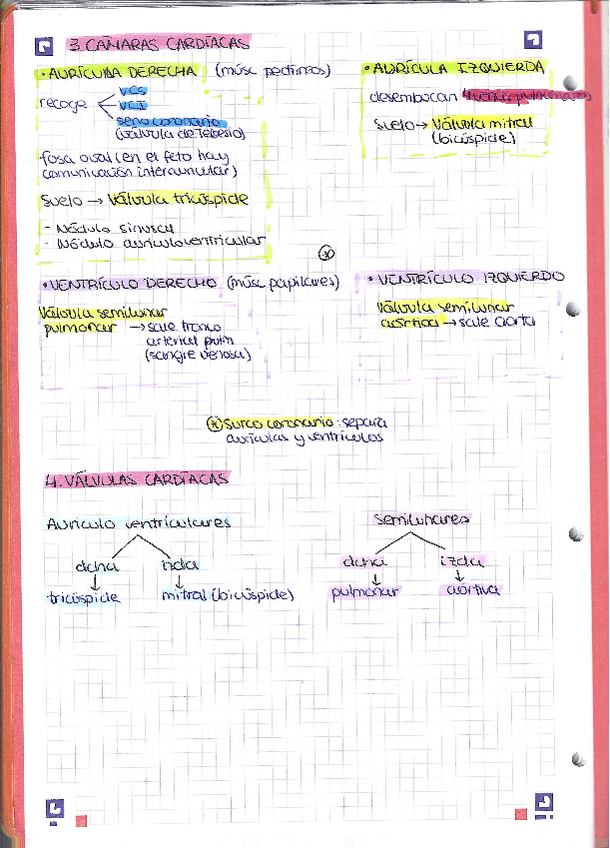 3. CÁMARAS CARDÍACAS
• AURÍCULA DERECHA (músc pectíneos)
recoge
VCS
VCI
seno coronario
(válvula de Tebesio)
fosa oval (en el feto hay
comunicación interauricular)
Suelo → Válvula tricúspide
- Nódulo sinusal
- Nódulo auriculoventricular
• AURÍCULA IZQUIERDA
desembocan venas pulmonares
Suelo → Válvula mitral
(bicúspide)
*
• VENTRÍCULO DERECHO (músc papilares)
Válvula semilunar
pulmonar → sale tronco
arterial pulm
(sangre venosa)
• VENTRÍCULO IZQUIERDO
Válvula semilunar
aórtica → sale aorta
* Surco coronario: separa
aurículas y ventrículos
4. VÁLVULAS CARDÍACAS
Aurículo ventriculares
dcha izda
tricúspide mitral (bicúspide)
Semilunares
dcha izda
pulmonar aórtica